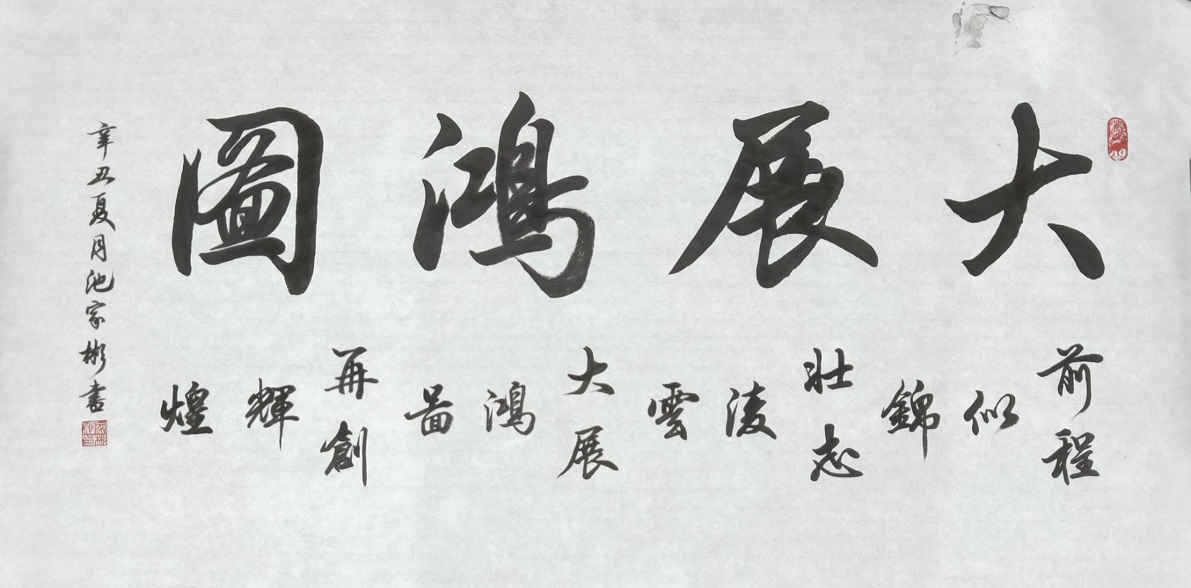 大展鴻圖
前程似錦
壯志凌雲
大展鴻啚
再創輝煌
辛丑夏月池家彬書